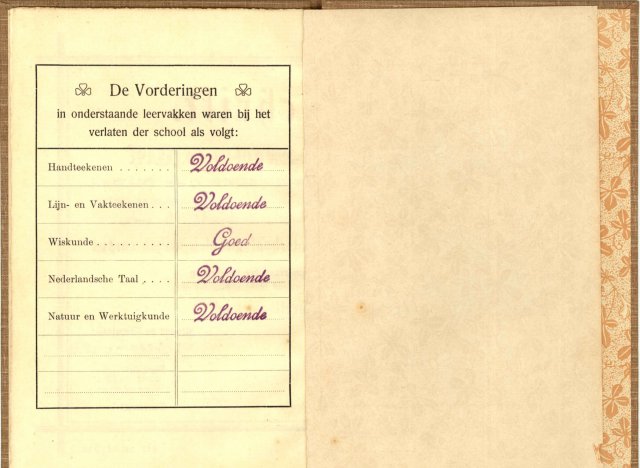 De Vorderingen
in onderstaande leervakken waren bij het
verlaten der school als volgt:
Handteekenen ....... Voldoende
Lijn- en Vakteekenen ... Voldoende
Wiskunde .......... Goed
Nederlandsche Taal .... Voldoende
Natuur en Werktuigkunde Voldoende